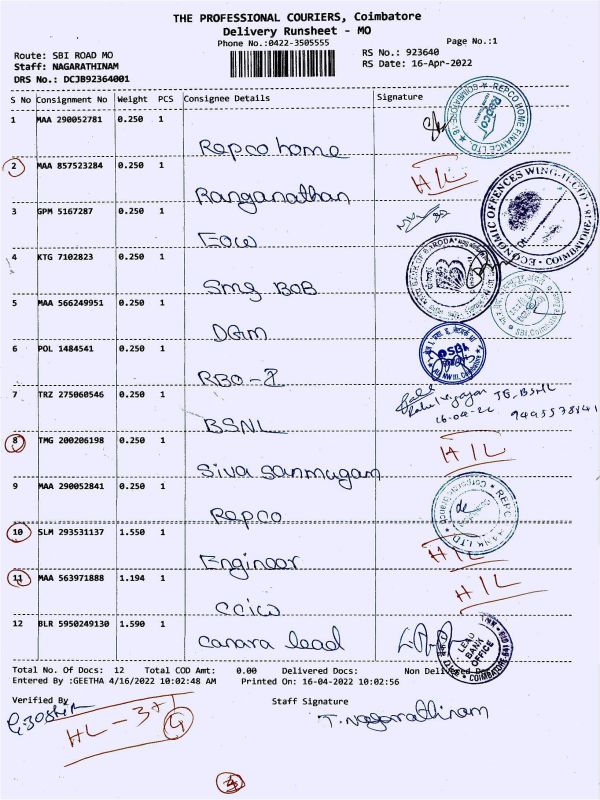 THE PROFESSIONAL COURIERS, Coimbatore
Delivery Runsheet - MO
Phone No.:0422-3505555
Page No.:1
Route: SBI ROAD MO
Staff: NAGARATHINAM
DRS No.: DCJB92364001
RS No.: 923640
RS Date: 16-Apr-2022
S No Consignment No Weight PCS Consignee Details Signature
1 MAA 290052781 0.250 1 Repco home
2 MAA 857523284 0.250 1 Ranganathan HIL
3 GPM 5167287 0.250 1 EOW
4 KTG 7102823 0.250 1 Smg BOB
5 MAA 566249951 0.250 1 DGM
6 POL 1484541 0.250 1 RBO-I
7 TRZ 275060546 0.250 1 BSNL
JE, BSNL
16-04-22 9495578841
8 TMG 200206198 0.250 1 Siva Sanmugam HIL
9 MAA 290052841 0.250 1 Repco
10 SLM 293531137 1.550 1 Engineer HIL
11 MAA 563971888 1.194 1 HIL
12 BLR 5950249130 1.590 1 Canara lead
REPCO HOME FINANCE LTD.
Repco
ECONOMIC OFFENCES WING-II, CID
COIMBATORE
BANK OF BARODA
SBI
LEAD BANK OFFICE
Total No. Of Docs: 12 Total COD Amt: 0.00 Delivered Docs: Non Delivered Docs
Entered By :GEETHA 4/16/2022 10:02:48 AM Printed On: 16-04-2022 10:02:56
Verified By
Staff Signature
T. Nagarathinam
HL - 3+1
4